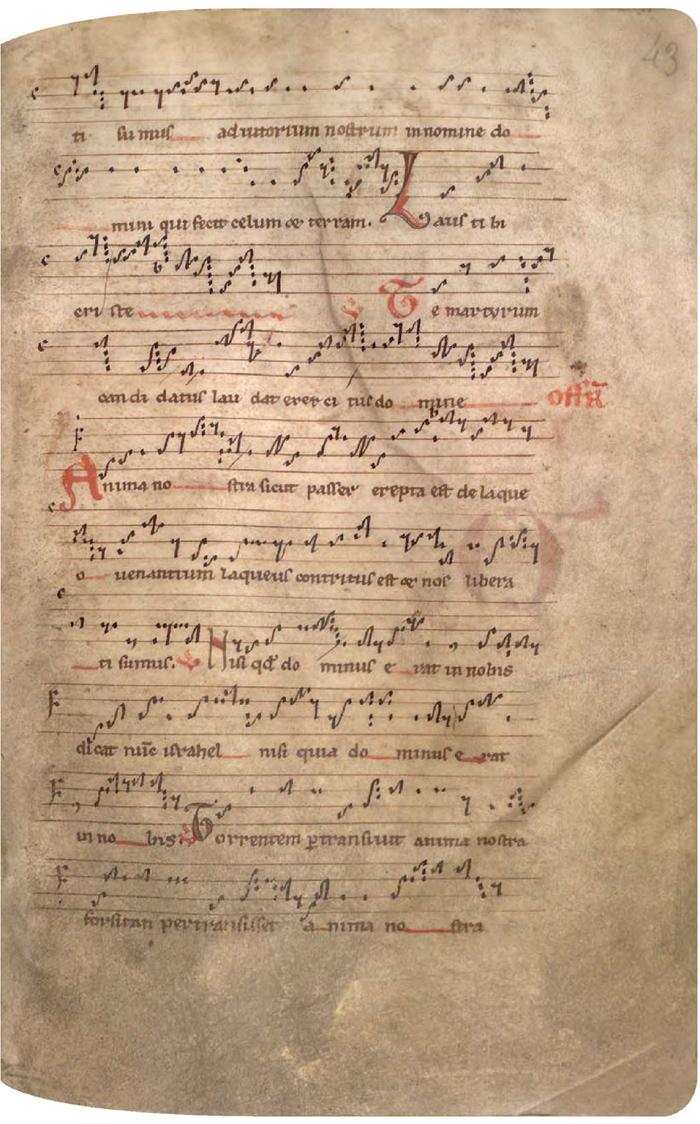 43
ti sumus adiutorium nostrum in nomine do
mini qui fecit celum et terram. Laus tibi
criste e Te martyrum
candidatus laudat exercitus domine offr̄
Anima nostra sicut passer erepta est de laque
o uenantium laqueus contritus est et nos libera
ti sumus. Nisi qđ dominus erat in nobis
dicat nūc israhel nisi quia dominus erat
in nobis Torrentem ꝑtransiuit anima nostra
forsitan pertransisset anima nostra